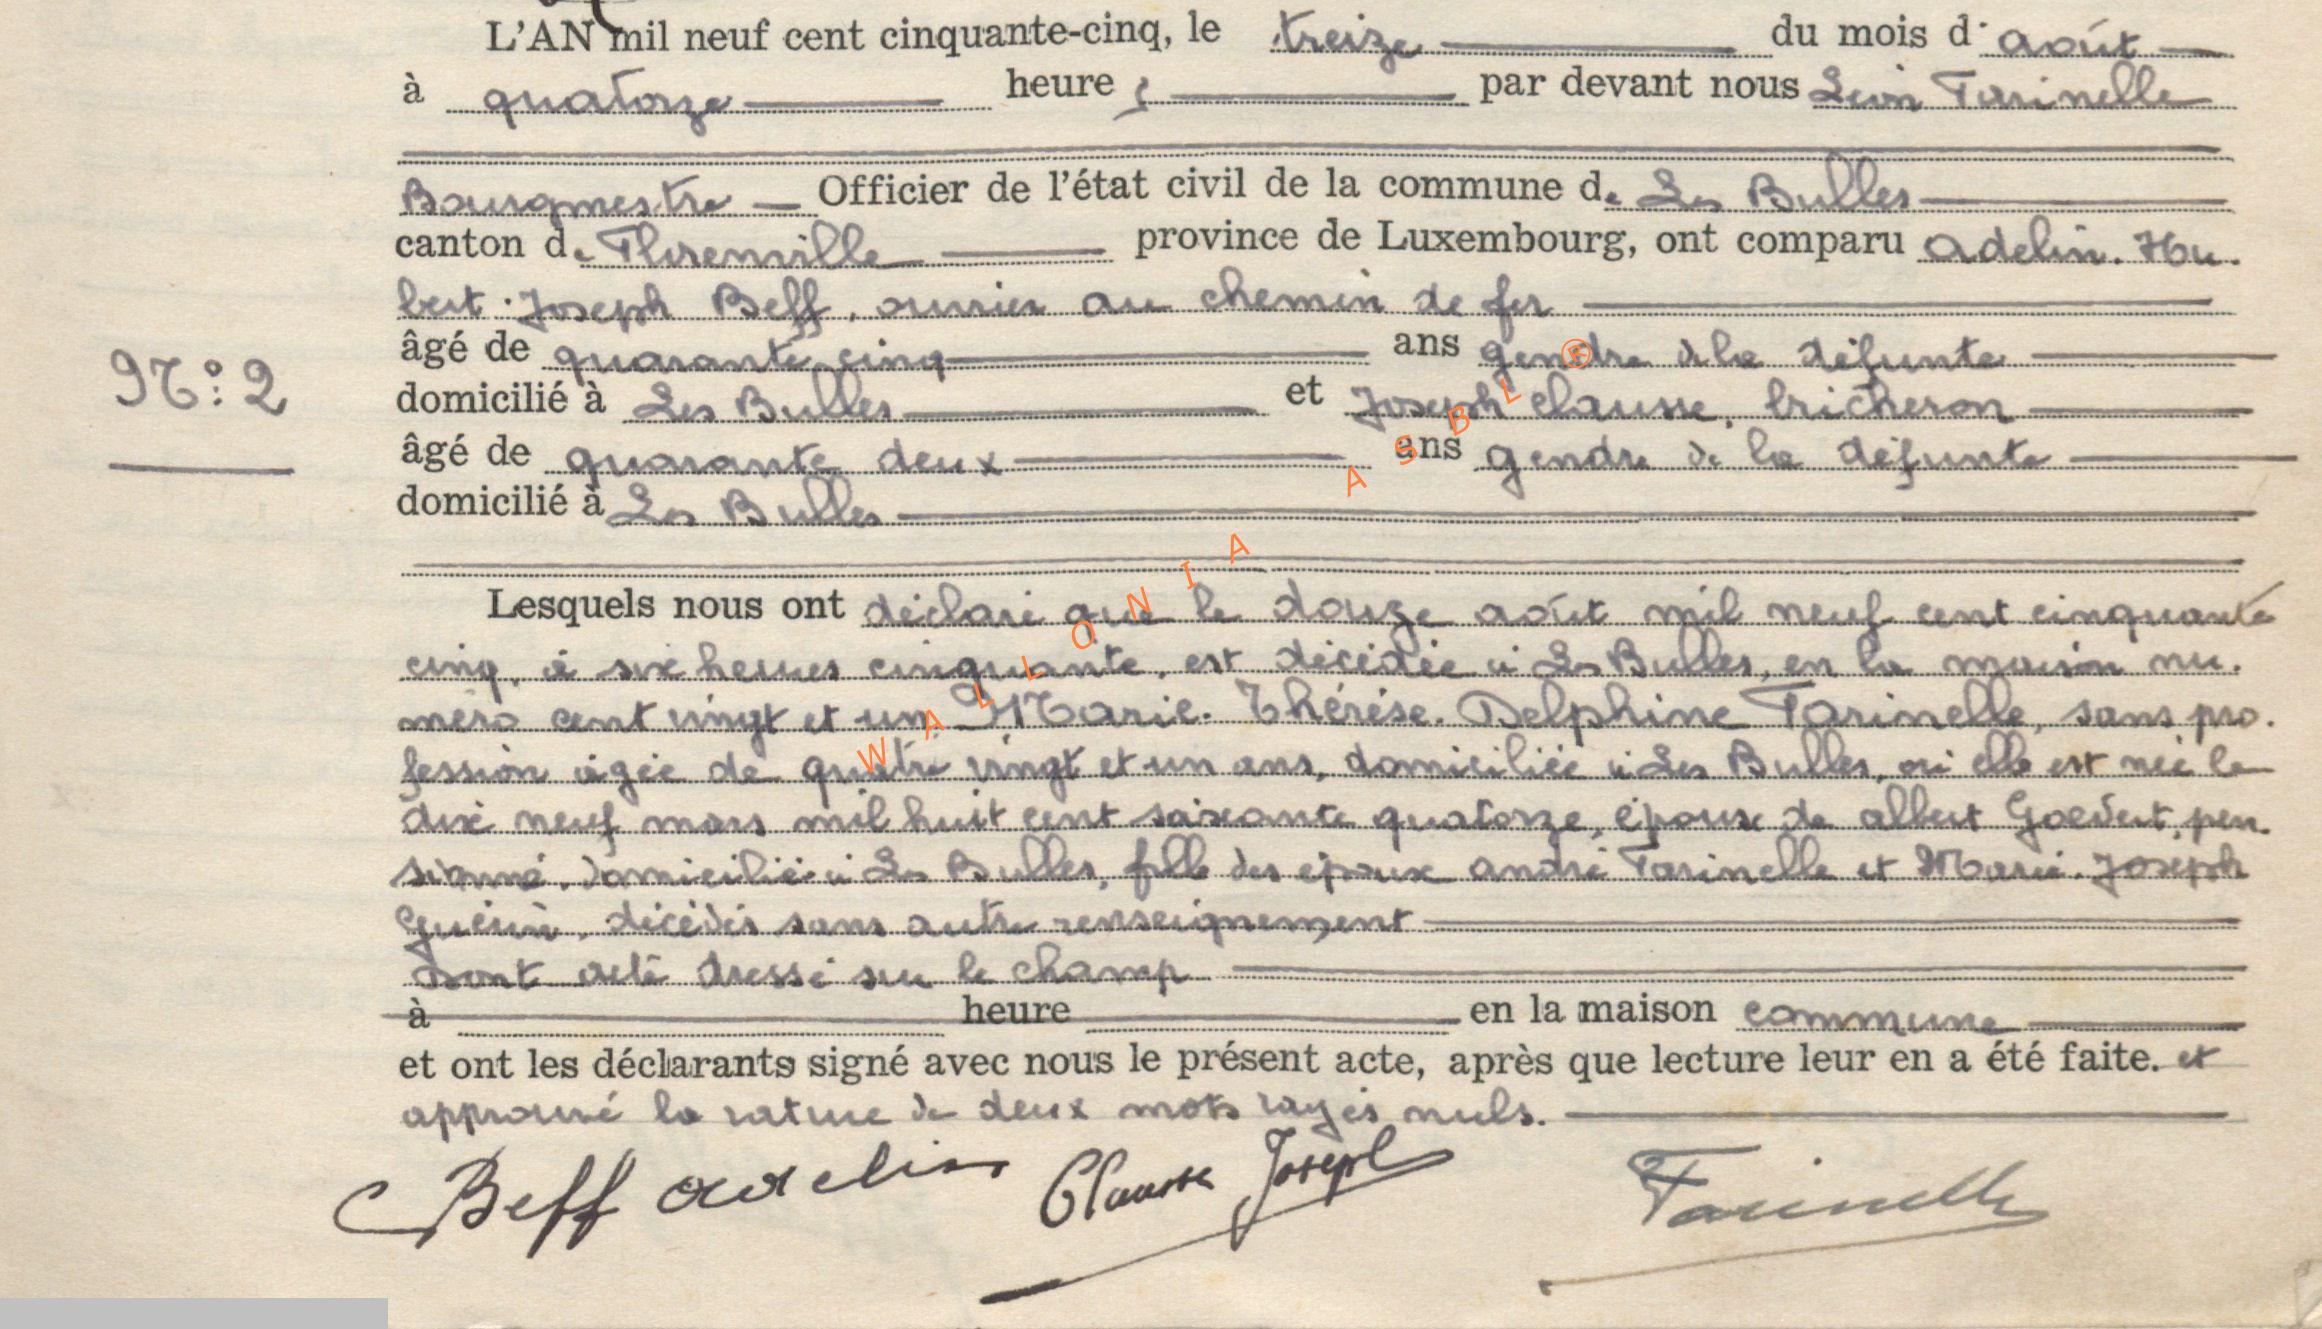 L'AN mil neuf cent cinquante-cinq, le treize du mois d' août
à quatorze heure s par devant nous Léon Farinelle
Bourgmestre Officier de l'état civil de la commune de Les Bulles
canton de Florenville province de Luxembourg, ont comparu Adelin-Hu-
bert-Joseph Beff, ouvrier au chemin de fer
âgé de quarante cinq ans gendre de la défunte
N°: 2
domicilié à Les Bulles et Joseph Clausse, bricheron
âgé de quarante deux ans gendre de la défunte
domicilié à Les Bulles
WALLONIA ASBL ®
Lesquels nous ont déclaré que le douze août mil neuf cent cinquante
cinq, à six heures cinquante, est décédée à Les Bulles, en la maison nu-
méro cent vingt et un Marie-Thérèse-Delphine Farinelle, sans pro-
fession âgée de quatre vingt et un ans, domiciliée à Les Bulles, où elle est née le
dix neuf mars mil huit cent soixante quatorze, épouse de Albert Goedert, pen-
sionné, domiciliée à Les Bulles, fille des époux André Farinelle et Marie-Joseph
Guérin, décédés sans autre renseignement
Dont acte dressé sur le champ
à heure en la maison commune
et ont les déclarants signé avec nous le présent acte, après que lecture leur en a été faite. et
approuvé la rature de deux mots rayés nuls.
Beff Adelin Clausse Joseph Farinelle